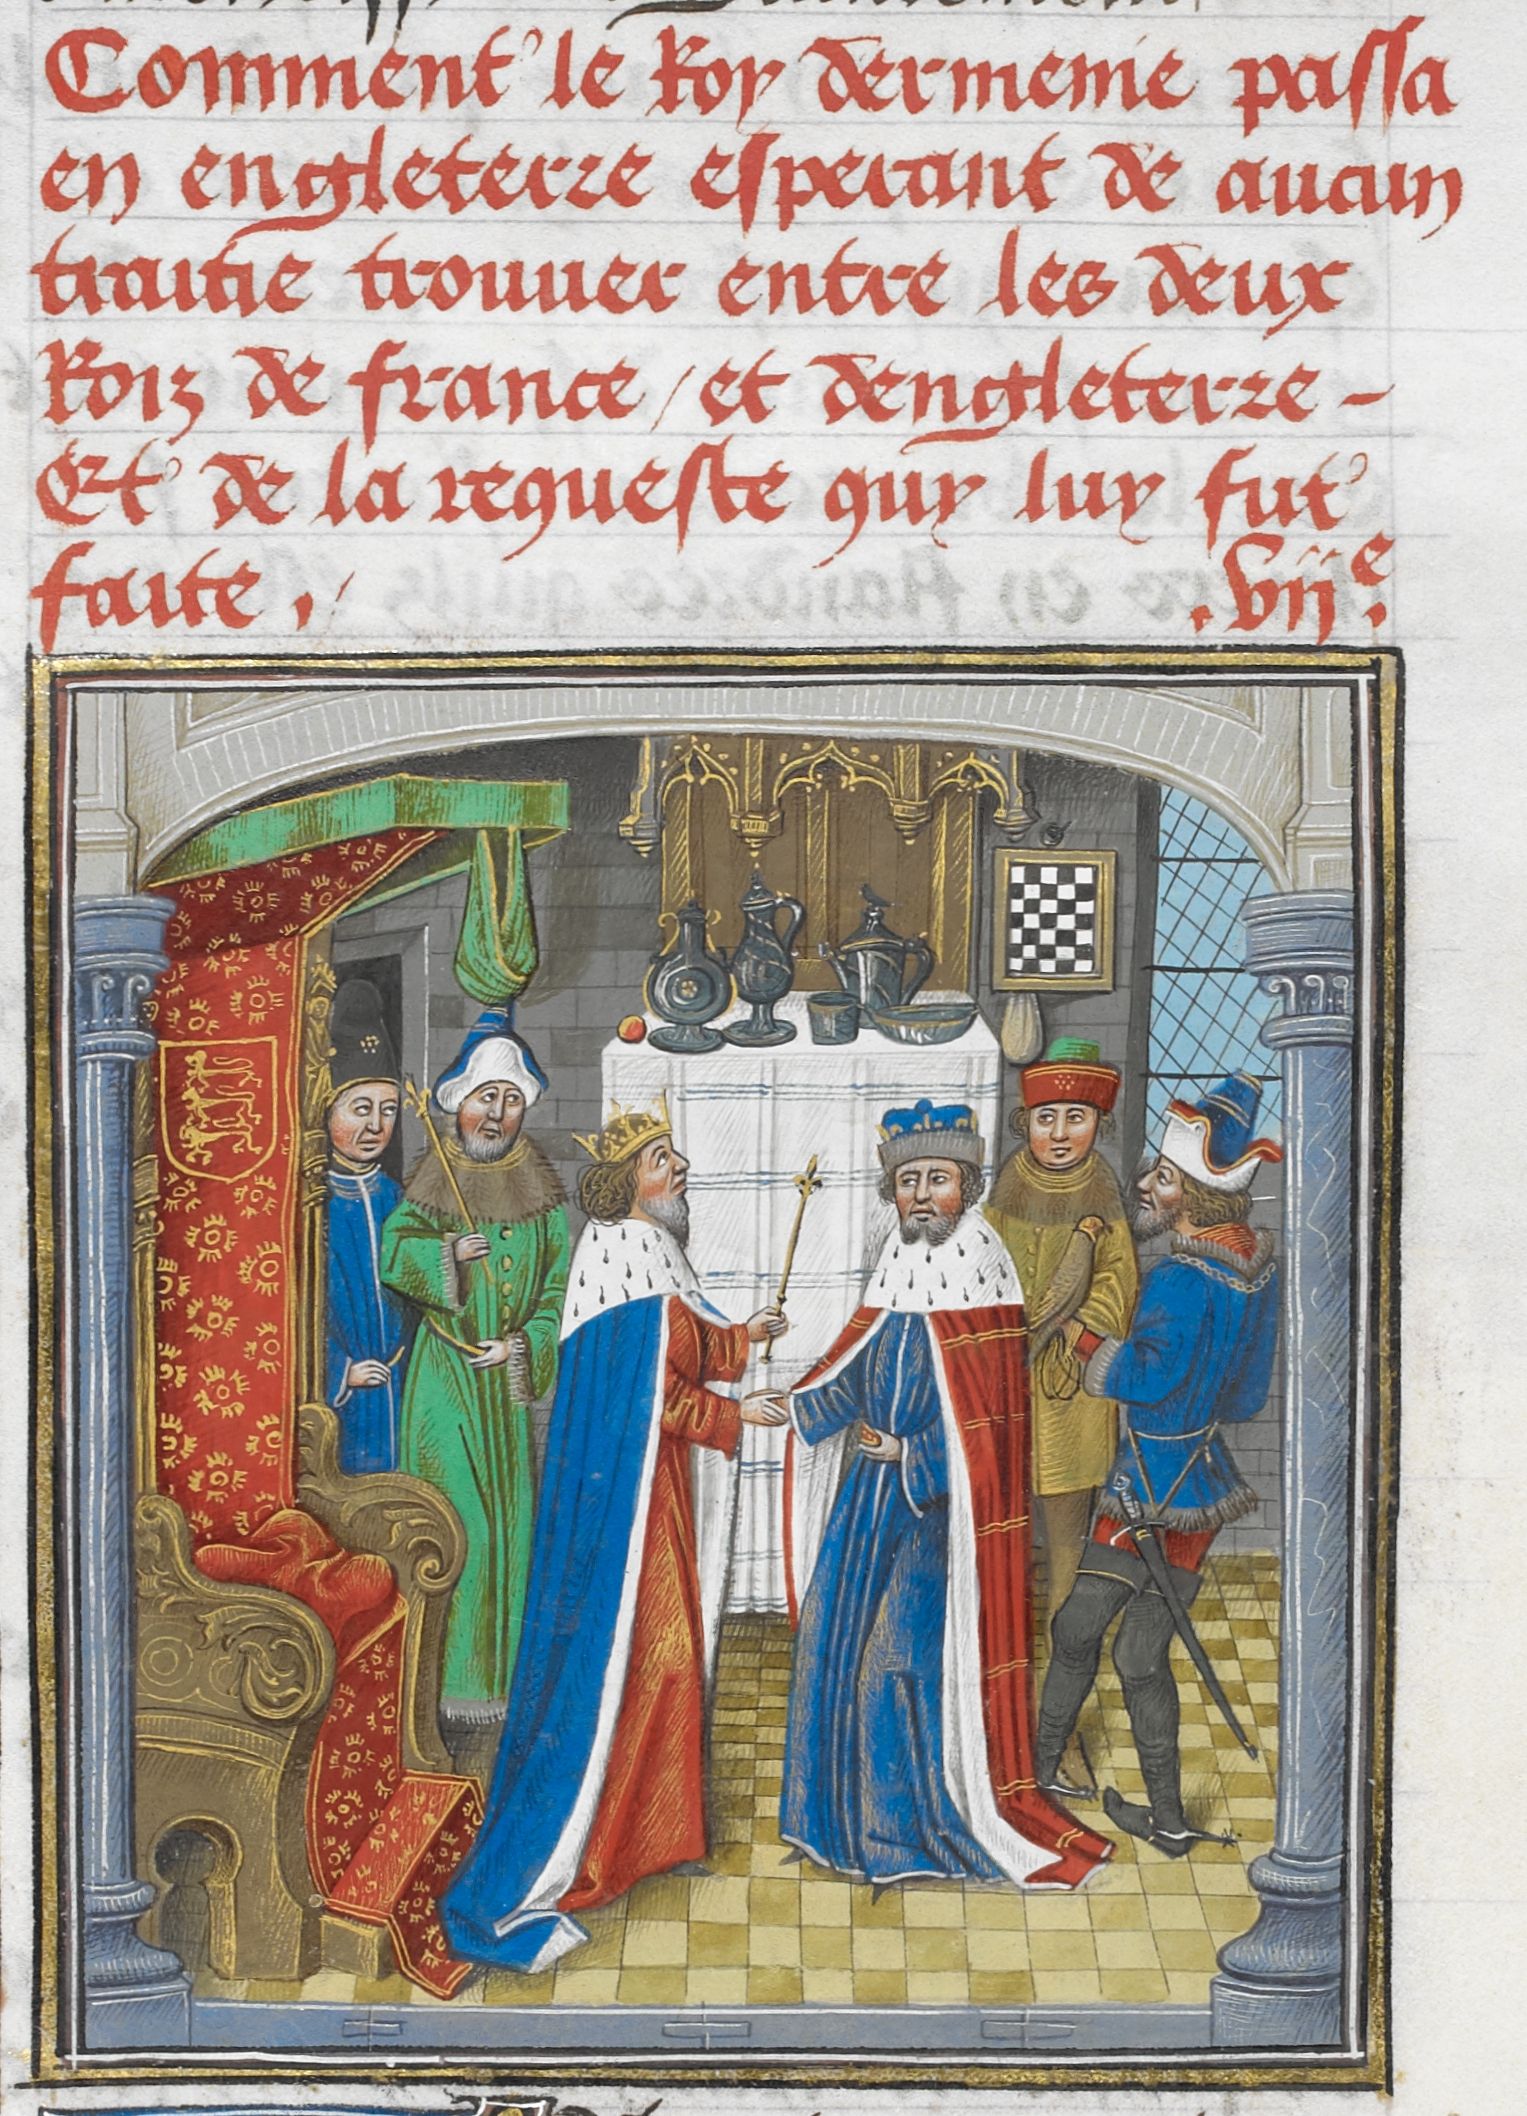 Comment le Roy dermenie passa
en engleterre esperant de aucun
traitie trouuer entre les deux
Rois de france / et dengleterre -
Et de la requeste quy luy fut
faite . / . vije .